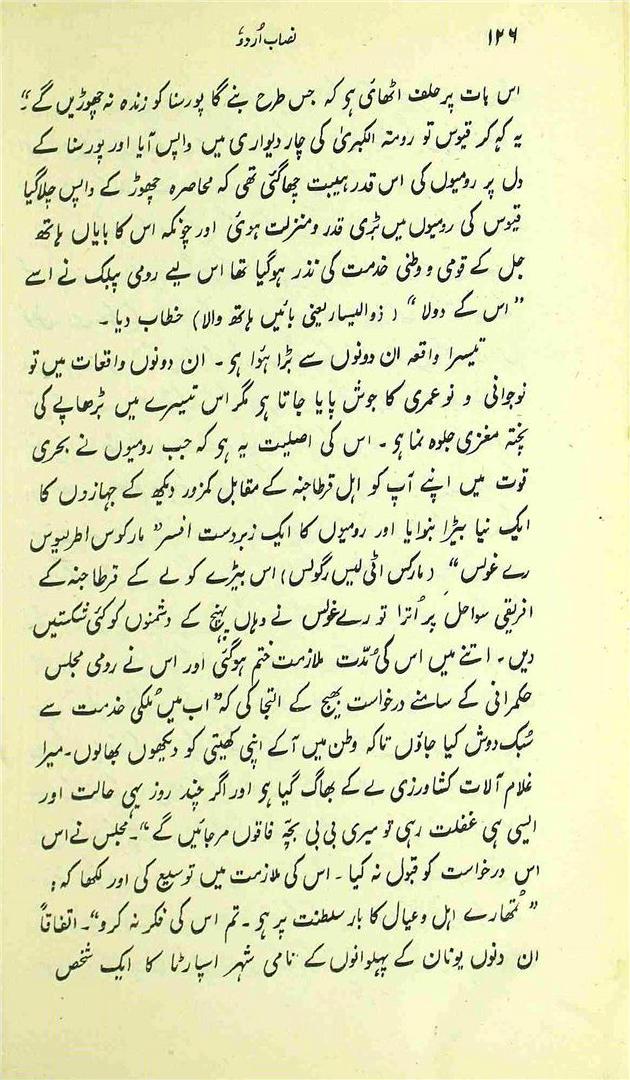 ۱۲۶ نصاب اُردو
اس بات پر حلف اٹھائی ہو کہ جس طرح بنے گا پورسنا کو زندہ نہ چھوڑیں گے"۔
یہ کہہ کر قیوس تو رومۃ الکبریٰ کی چار دیواری میں واپس آیا اور پورسنا کے
دل پر رومیوں کی اس قدر ہیبت چھاگئی تھی کہ محاصرہ چھوڑ کے واپس چلاگیا
قیوس کی رومیوں میں بڑی قدر و منزلت ہوئی اور چونکہ اس کا بایاں ہاتھ
جل کے قومی و وطنی خدمت کی نذر ہوگیا تھا اس لیے رومی پبلک نے اسے
"اس کے دولا" (ذوالیسار یعنی بائیں ہاتھ والا) خطاب دیا ۔
تیسرا واقعہ ان دونوں سے بڑا ہُوا ہو ۔ ان دونوں واقعات میں تو
نوجوانی و نوعمری کا جوش پایا جاتا ہو مگر اس تیسرے میں بڑھاپے کی
پختہ مغزی جلوہ نما ہو ۔ اس کی اصلیت یہ ہو کہ جب رومیوں نے بحری
قوت میں اپنے آپ کو اہل قرطاجنہ کے مقابل کمزور دیکھ کے جہازوں کا
ایک نیا بیڑا بنوایا اور رومیوں کا ایک زبردست افسر "مارکوس اطریبوس
رے غولس" (مارکس اٹی لیس رگولس) اس بیڑے کو لے کے قرطاجنہ کے
افریقی سواحل پر اُترا تو رے غولس نے وہاں پہنچ کے دشمنوں کو کئی شکستیں
دیں ۔ اتنے میں اس کی مُدّت ملازمت ختم ہوگئی اور اس نے رومی مجلس
حکمرانی کے سامنے درخواست بھیج کے التجا کی کہ "اب میں مُلکی خدمت سے
سُبک دوش کیا جاؤں تاکہ وطن میں آکے اپنی کھیتی کو دیکھوں بھالوں ۔ میرا
غلام آلات کشاورزی لے کے بھاگ گیا ہو اور اگر چند روز یہی حالت اور
ایسی ہی غفلت رہی تو میری بی بی بچّے فاقوں مرجائیں گے"۔ مجلس نے اس
اس درخواست کو قبول نہ کیا ۔ اس کی ملازمت میں توسیع کی اور لکھا کہ :
"تمھارے اہل و عیال کا بار سلطنت پر ہو ۔ تم اس کی فکر نہ کرو"۔ اتفاقاً
ان دنوں یونان کے پہلوانوں کے نامی شہر اسپارٹا کا ایک شخص